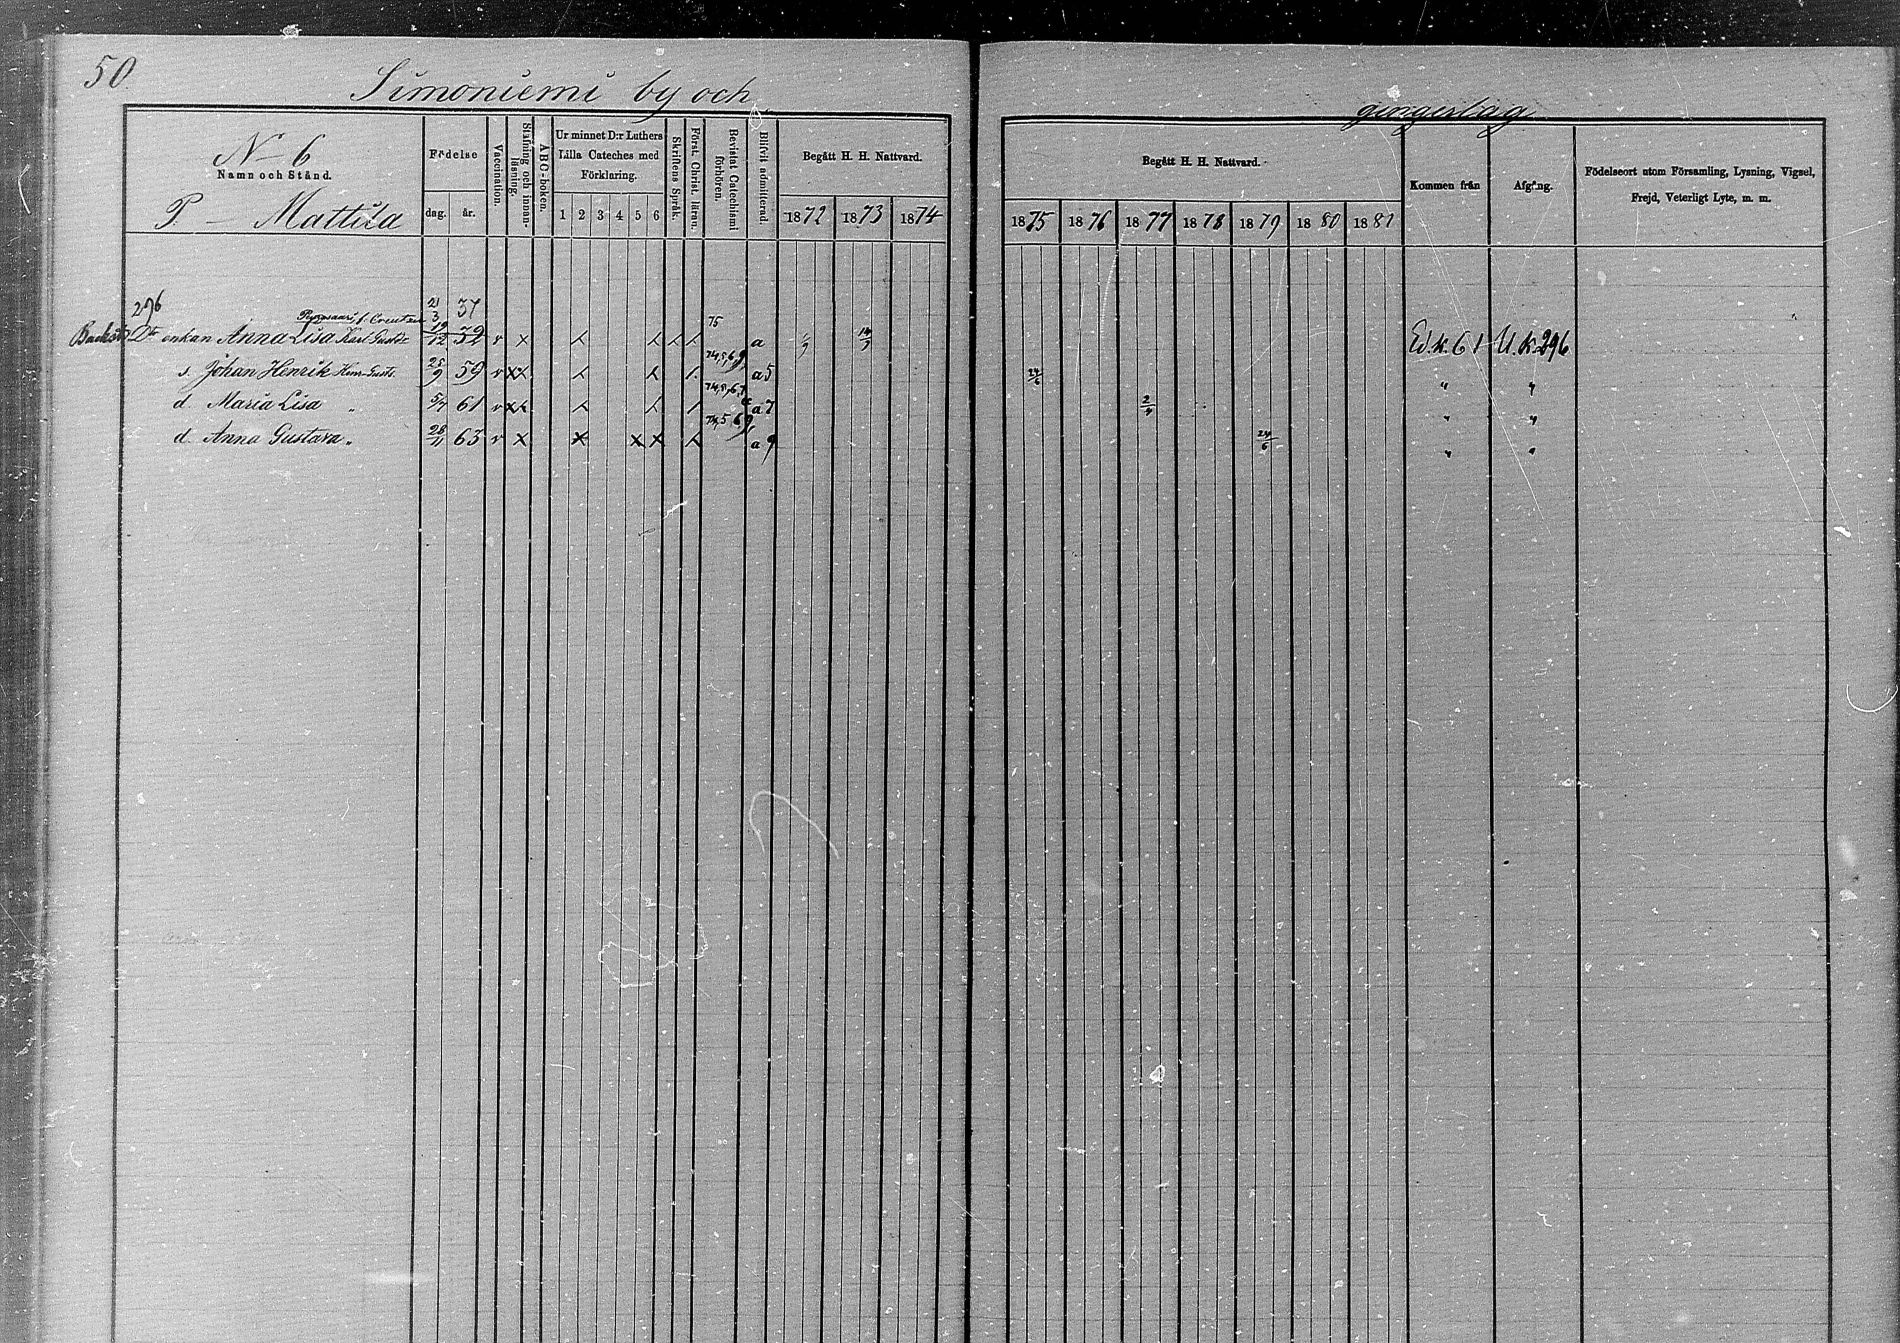 50.
Simoniemi by och gingerlag
N 6
Namn och Stånd.
P. — Mattila
Födelse
dag. år.
Vaccination.
Stafning och innanläsning.
ABC-boken.
Ur minnet D:r Luthers
Lilla Cateches med
Förklaring.
1 2 3 4 5 6
Skriftens Språk.
Först. Christ. läran.
Bevistat Catechismi förhören.
Blifvit admitterad.
Begått H. H. Nattvard.
1872 1873 1874
Begått H. H. Nattvard.
1875 1876 1877 1878 1879 1880 1881
Kommen från
Afgång.
Födelseort utom Församling, Lysning, Vigsel,
Frejd, Veterligt Lyte, m. m.
296
21/3 37
enkan Anna Lisa Karl Gustdr 19/12 32 v x 75 a Ed.k.61 U.k.296
s. Johan Henrik Henr. Gusts. 25/9 59 v xx 74,5,6,9 a5 24/6 " "
d. Maria Lisa " 5/7 61 v xx a7 2/4 " "
d. Anna Gustava " 28/11 63 v x x x x 74,5,6,9 a9 24/6 " "